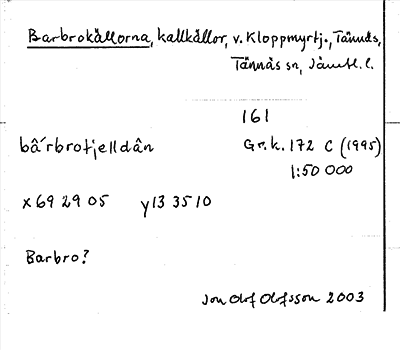 Barbrokällorna, kallkällor, v. Kloppmyrtj., Tännäs,
Tännäs sn, Jämtl. l.
161
bà´rbrotjelldân
Gr.k. 172 C (1995)
1:50 000
x 69 29 05 y 13 35 10
Barbro?
Jon Olof Olofsson 2003